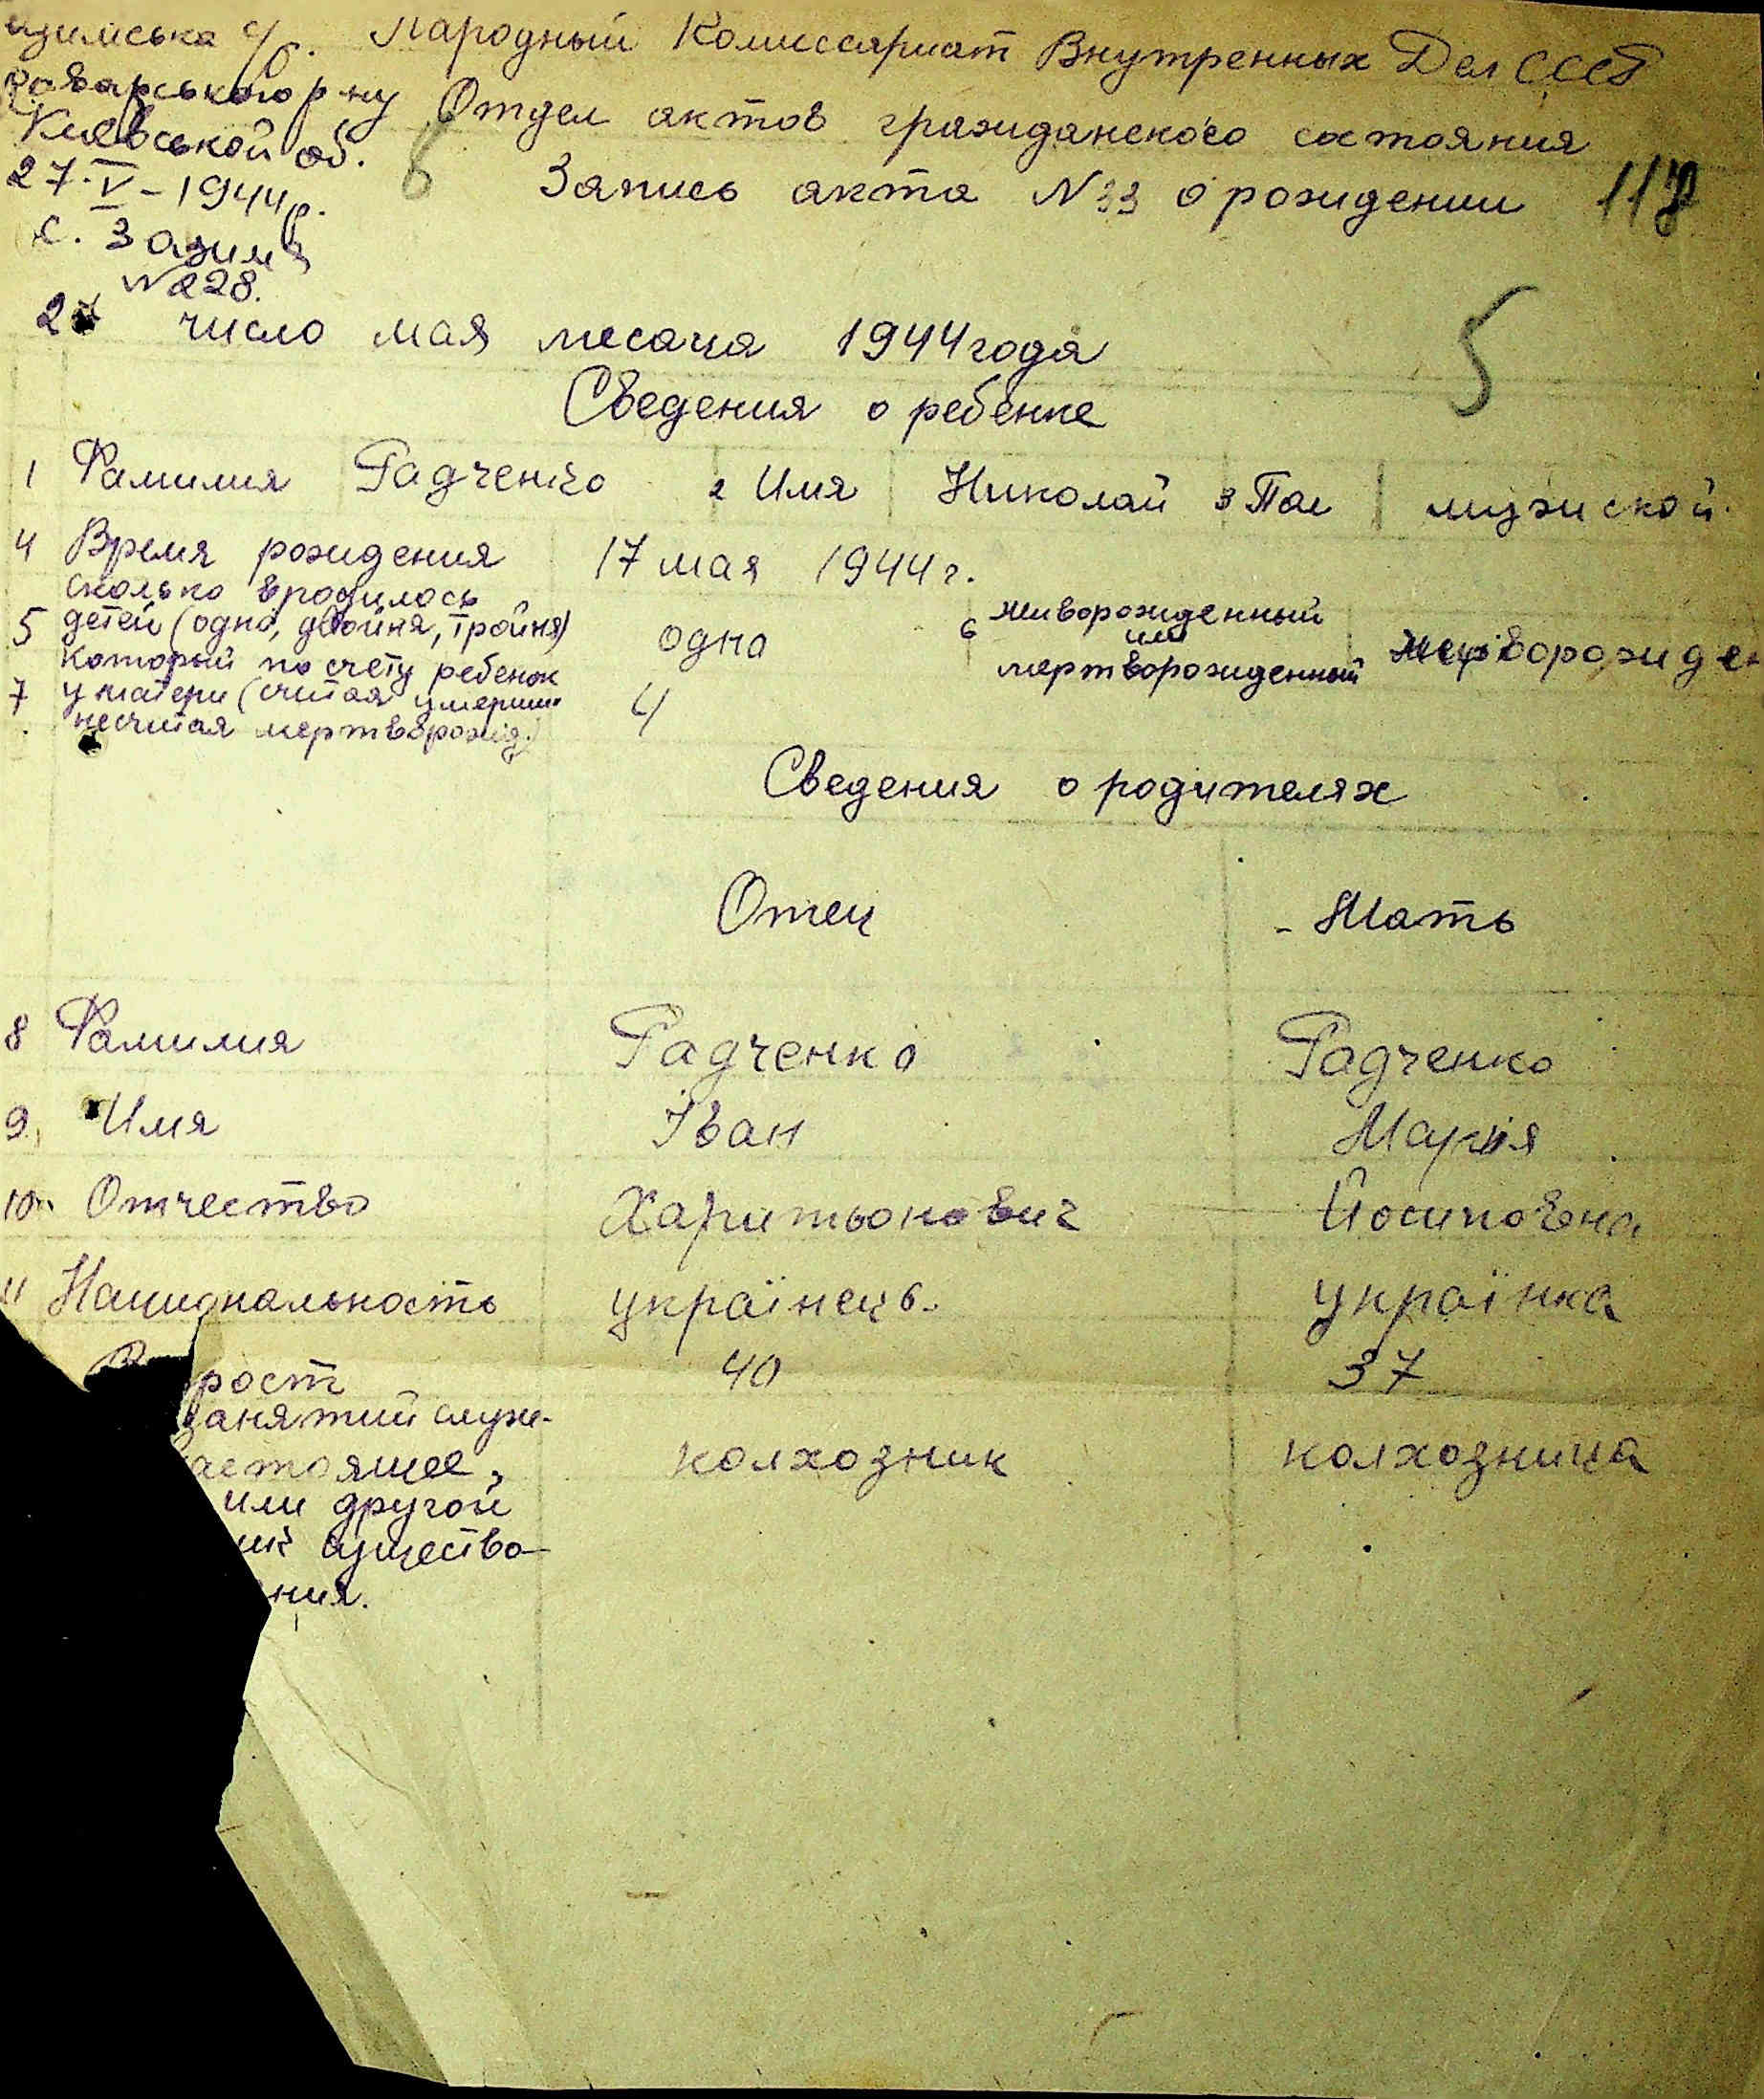 Народный Комиссариат Внутренных Дел СССР
Отдел актов гражданского состояния
Запись акта N 33 о рождении 118
зимська с/р.
роварського р-ну
Київської об.
27.V-1944 р.
с. Зазимя
N 228.
6
5
27 число мая месаца 1944 года
Сведения о ребенке
1 Фамилия Радченко 2 Имя Николай 3 Пол мужской
4 Время рождения 17 мая 1944 г.
5 сколько вродилось
детей (одна, двойня, тройня) одна
6 живорожденный
или
мертворожденный живорожден
7 который по счету ребенок
у матери (считая умерших
несчитая мертворожд.) 4
Сведения о родителях
Отец Мать
8 Фамилия Радченко Радченко
9. Имя Іван Марія
10. Отчество Харитьонович Йосиповна
11 Национальность українець. українка
рост 40 37
занятий служ-
астоящее, колхозник колхозница
или другой
ик существо-
ния.